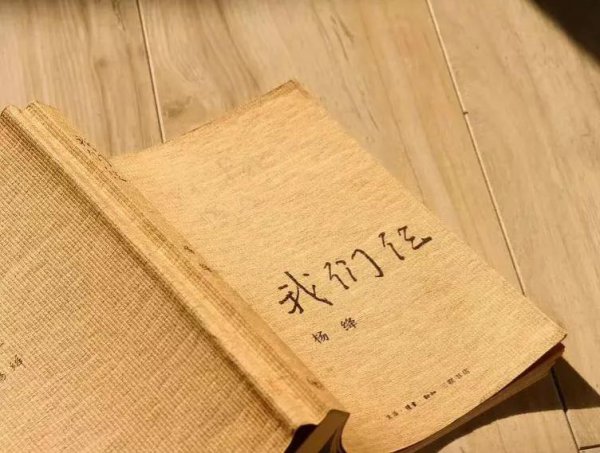 我们仨
杨绛
生活·讀書·新知 三联书店
杨绛